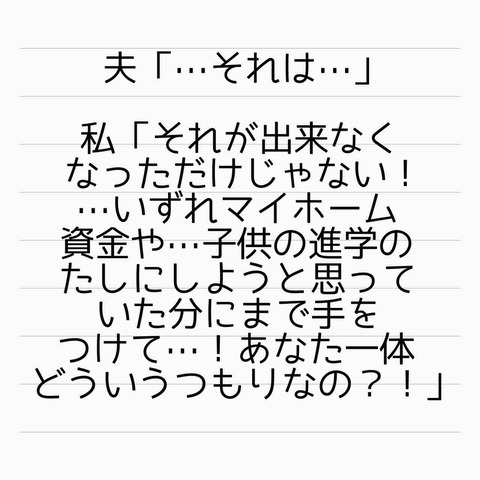 夫「…それは…」
私「それが出来なく
なっただけじゃない！
…いずれマイホーム
資金や…子供の進学の
たしにしようと思って
いた分にまで手を
つけて…！あなた一体
どういうつもりなの？！」